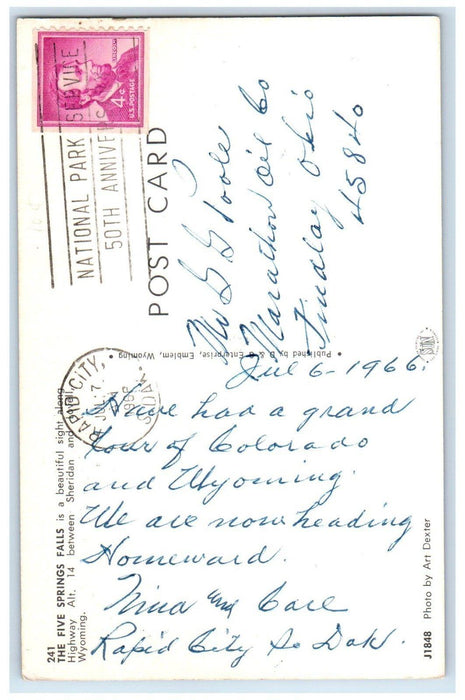 LINCOLN
4¢
U.S. POSTAGE
NATIONAL PARK SERVICE
50TH ANNIVERS
POST CARD
Mr G G Poole
Marathon Oil Co
Findlay Ohio
45840
RAPID CITY,
JUL 7
PM
• Published by D & G Enterprise, Emblem, Wyoming
Jul 6-1966.
Have had a grand
tour of Colorado
and Wyoming.
We are now heading
Homeward.
Nina and Carl
Rapid City So Dak
241
THE FIVE SPRINGS FALLS is a beautiful sight along
Highway Alt. 14 between Sheridan and
Wyoming.
J1848 Photo by Art Dexter